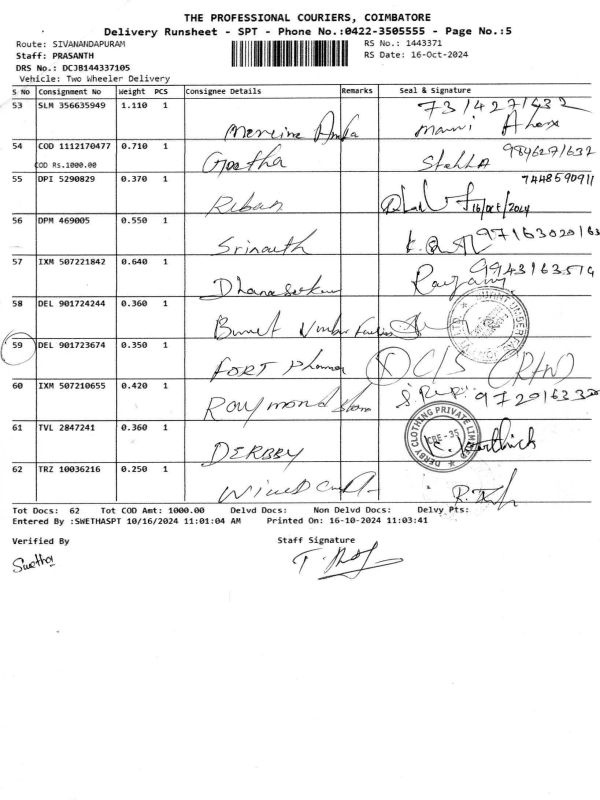 THE PROFESSIONAL COURIERS, COIMBATORE
Delivery Runsheet - SPT - Phone No.:0422-3505555 - Page No.:5
Route: SIVANANDAPURAM RS No.: 1443371
Staff: PRASANTH RS Date: 16-Oct-2024
DRS No.: DCJB144337105
Vehicle: Two Wheeler Delivery
S No Consignment No Weight PCS Consignee Details Remarks Seal & Signature
53 SLM 356635949 1.110 1
54 COD 1112170477 0.710 1 Geetha Stella
COD Rs.1000.00
55 DPI 5290829 0.370 1 Riban 7448590911
16/oct/2024
56 DPM 469005 0.550 1 Srinath
57 IXM 507221842 0.640 1
58 DEL 901724244 0.360 1
59 DEL 901723674 0.350 1 FORT C/S
60 IXM 507210655 0.420 1 Raymond
61 TVL 2847241 0.360 1 DERBY DERBY CLOTHING PRIVATE LIMITED CBE-35 Karthick
62 TRZ 10036216 0.250 1
Tot Docs: 62 Tot COD Amt: 1000.00 Delvd Docs: Non Delvd Docs: Delvy Pts:
Entered By :SWETHASPT 10/16/2024 11:01:04 AM Printed On: 16-10-2024 11:03:41
Verified By Staff Signature
Swetha